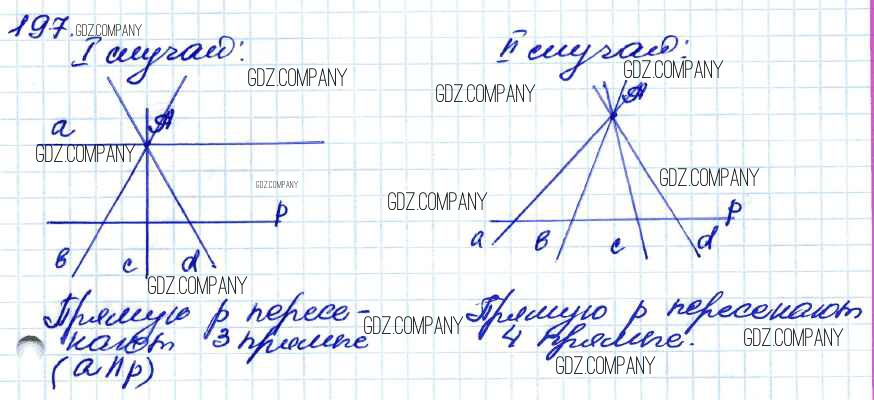 197. GDZ.COMPANY
I случай:
II случай:
GDZ.COMPANY
GDZ.COMPANY
GDZ.COMPANY
a
A
A
GDZ.COMPANY
GDZ.COMPANY
GDZ.COMPANY
GDZ.COMPANY
p
p
в
c
d
a
в
c
d
GDZ.COMPANY
Прямую p пересе-
кают 3 прямые
(a П p)
GDZ.COMPANY
Прямую p пересекают
4 прямые.
GDZ.COMPANY
GDZ.COMPANY